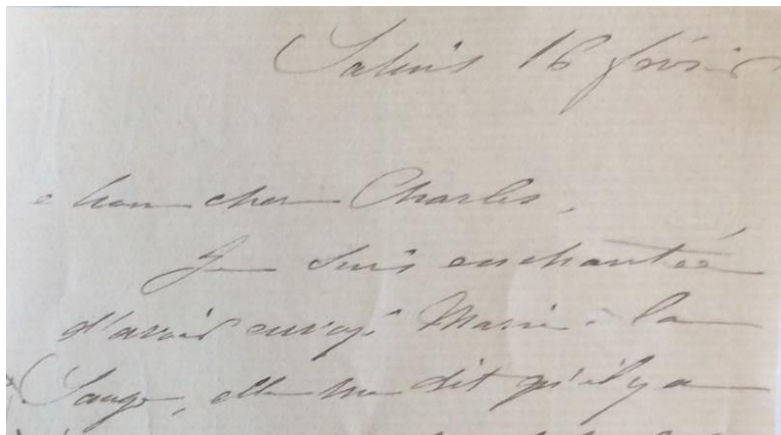 Salins 16 février
Mon cher Charles,
Je suis enchantée
d'avoir envoyé Marie à la
Sauge, elle me dit qu'il y a